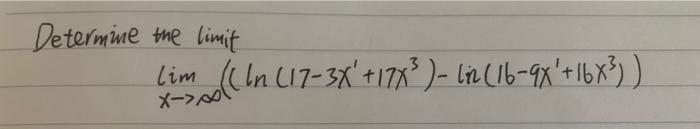 Determine the limit
lim ((ln(17-3x'+17x³)-ln(16-9x'+16x³))
x->∞